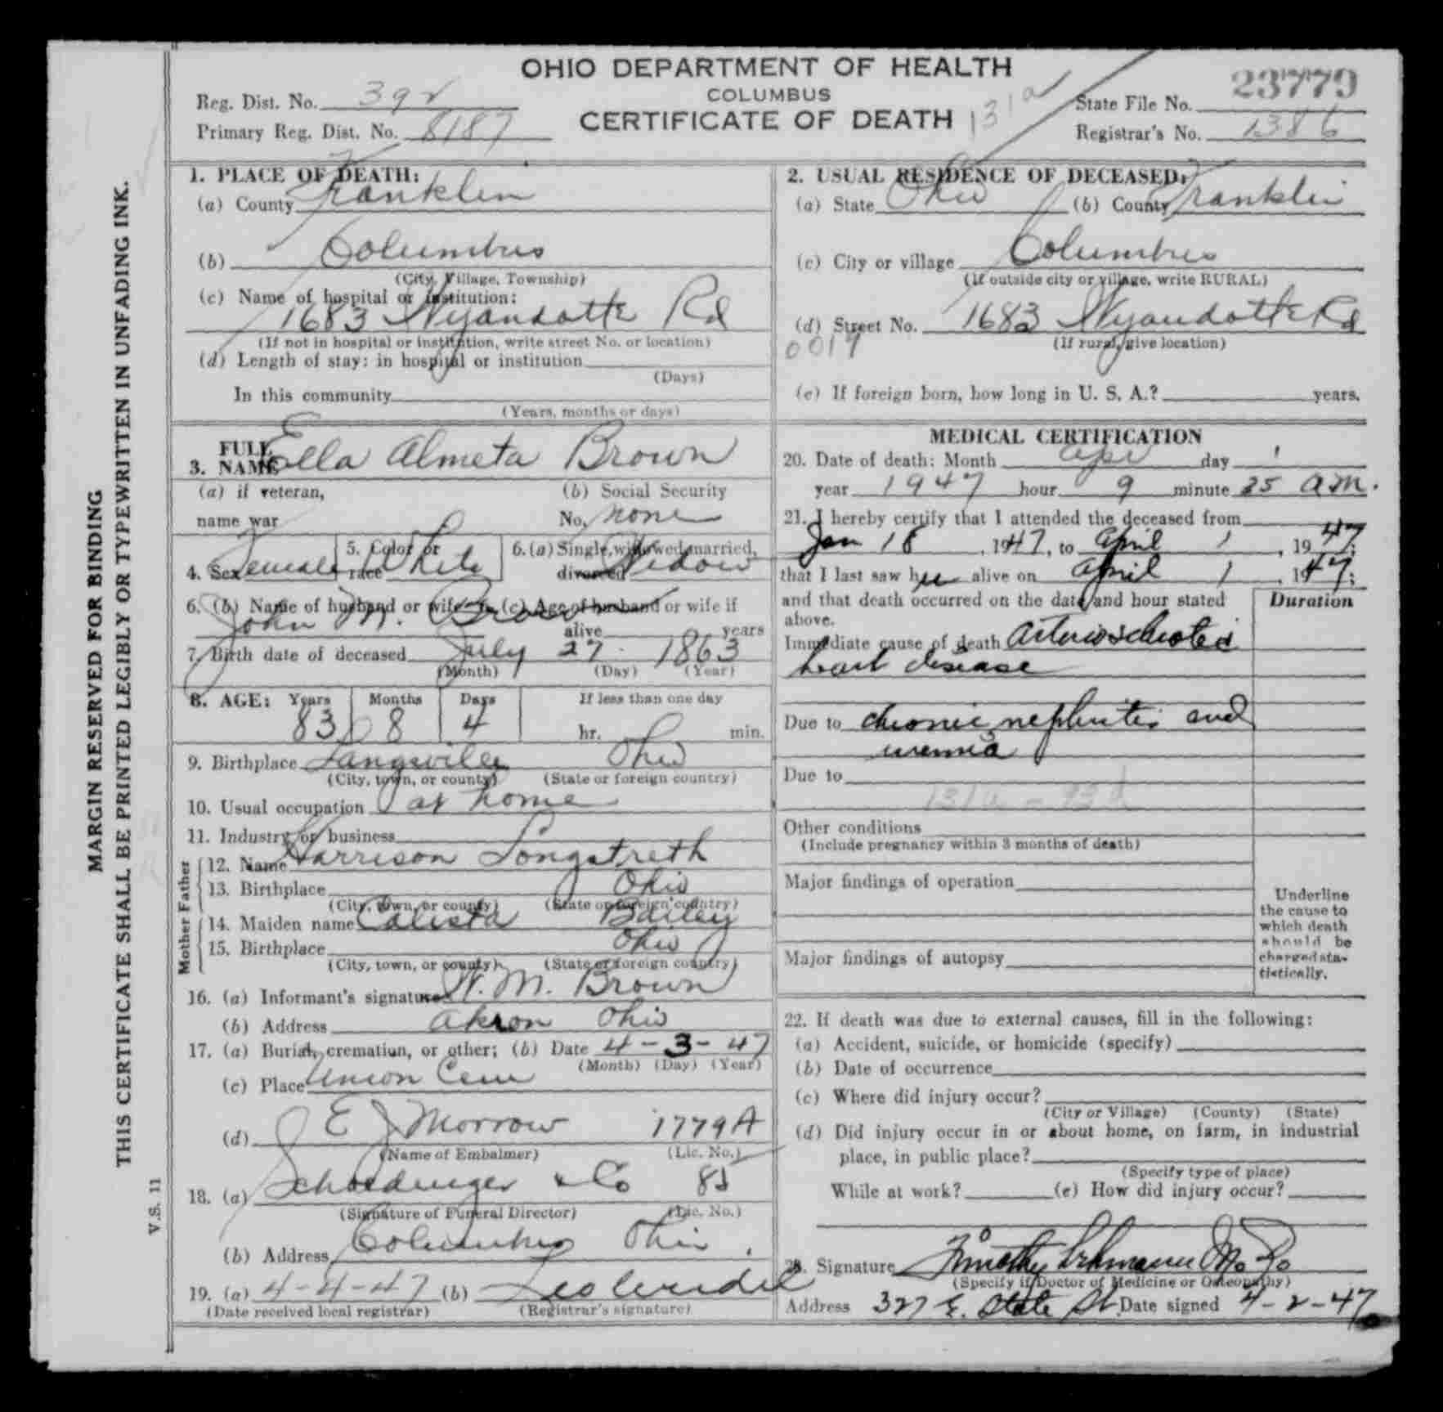 OHIO DEPARTMENT OF HEALTH
COLUMBUS
CERTIFICATE OF DEATH 131a
Reg. Dist. No. 392
Primary Reg. Dist. No. 8187
23779
State File No.
Registrar's No. 1386
MARGIN RESERVED FOR BINDING
THIS CERTIFICATE SHALL BE PRINTED LEGIBLY OR TYPEWRITTEN IN UNFADING INK.
V.S. 11
1. PLACE OF DEATH:
(a) County Franklin
(b) Columbus
(City, Village, Township)
(c) Name of hospital or institution:
1683 Wyandotte Rd
(If not in hospital or institution, write street No. or location)
(d) Length of stay: in hospital or institution
(Days)
In this community
(Years, months or days)
2. USUAL RESIDENCE OF DECEASED:
(a) State Ohio (b) County Franklin
(c) City or village Columbus
(If outside city or village, write RURAL)
(d) Street No. 1683 Wyandotte Rd
0019
(If rural, give location)
(e) If foreign born, how long in U. S. A.? years.
3. FULL NAME Ella Almeta Brown
(a) if veteran, name war
(b) Social Security No. none
4. Sex Female 5. Color or race White 6. (a) Single, widowed, married, divorced Widow
6. (b) Name of husband or wife (c) Age of husband or wife if
John M. Brown alive years
7. Birth date of deceased July 27 1863
(Month) (Day) (Year)
8. AGE: Years Months Days If less than one day
83 8 4 hr. min.
9. Birthplace Langsville Ohio
(City, town, or county) (State or foreign country)
10. Usual occupation at home
11. Industry or business
Father
12. Name Harrison Longstreth
13. Birthplace Ohio
(City, town, or county) (State or foreign country)
Mother
14. Maiden name Calista Bailey
15. Birthplace Ohio
(City, town, or county) (State or foreign country)
16. (a) Informant's signature W. M. Brown
(b) Address Akron Ohio
17. (a) Burial, cremation, or other; (b) Date 4-3-47
(Month) (Day) (Year)
(c) Place Union Cem
(d) E J Morrow 1779A
(Name of Embalmer) (Lic. No.)
18. (a) Schoedinger & Co
(Signature of Funeral Director) (Lic. No.)
(b) Address Columbus Ohio
19. (a) 4-4-47 (b)
(Date received local registrar) (Registrar's signature)
MEDICAL CERTIFICATION
20. Date of death: Month Apr day 1
year 1947 hour 9 minute 25 a.m.
21. I hereby certify that I attended the deceased from
Jan 18, 1947, to April 1, 1947;
that I last saw her alive on April 1, 1947;
and that death occurred on the date and hour stated
above.
Duration
Immediate cause of death Arteriosclerotic
heart disease
Due to chronic nephritis and
uremia
Due to
131a - 93d
Other conditions
(Include pregnancy within 3 months of death)
Major findings of operation
Major findings of autopsy
Underline
the cause to
which death
should be
charged sta-
tistically.
22. If death was due to external causes, fill in the following:
(a) Accident, suicide, or homicide (specify)
(b) Date of occurrence
(c) Where did injury occur?
(City or Village) (County) (State)
(d) Did injury occur in or about home, on farm, in industrial
place, in public place?
(Specify type of place)
While at work? (e) How did injury occur?
23. Signature Timothy M. D.
(Specify if Doctor of Medicine or Osteopathy)
Address 327 E. State St. Date signed 4-2-47